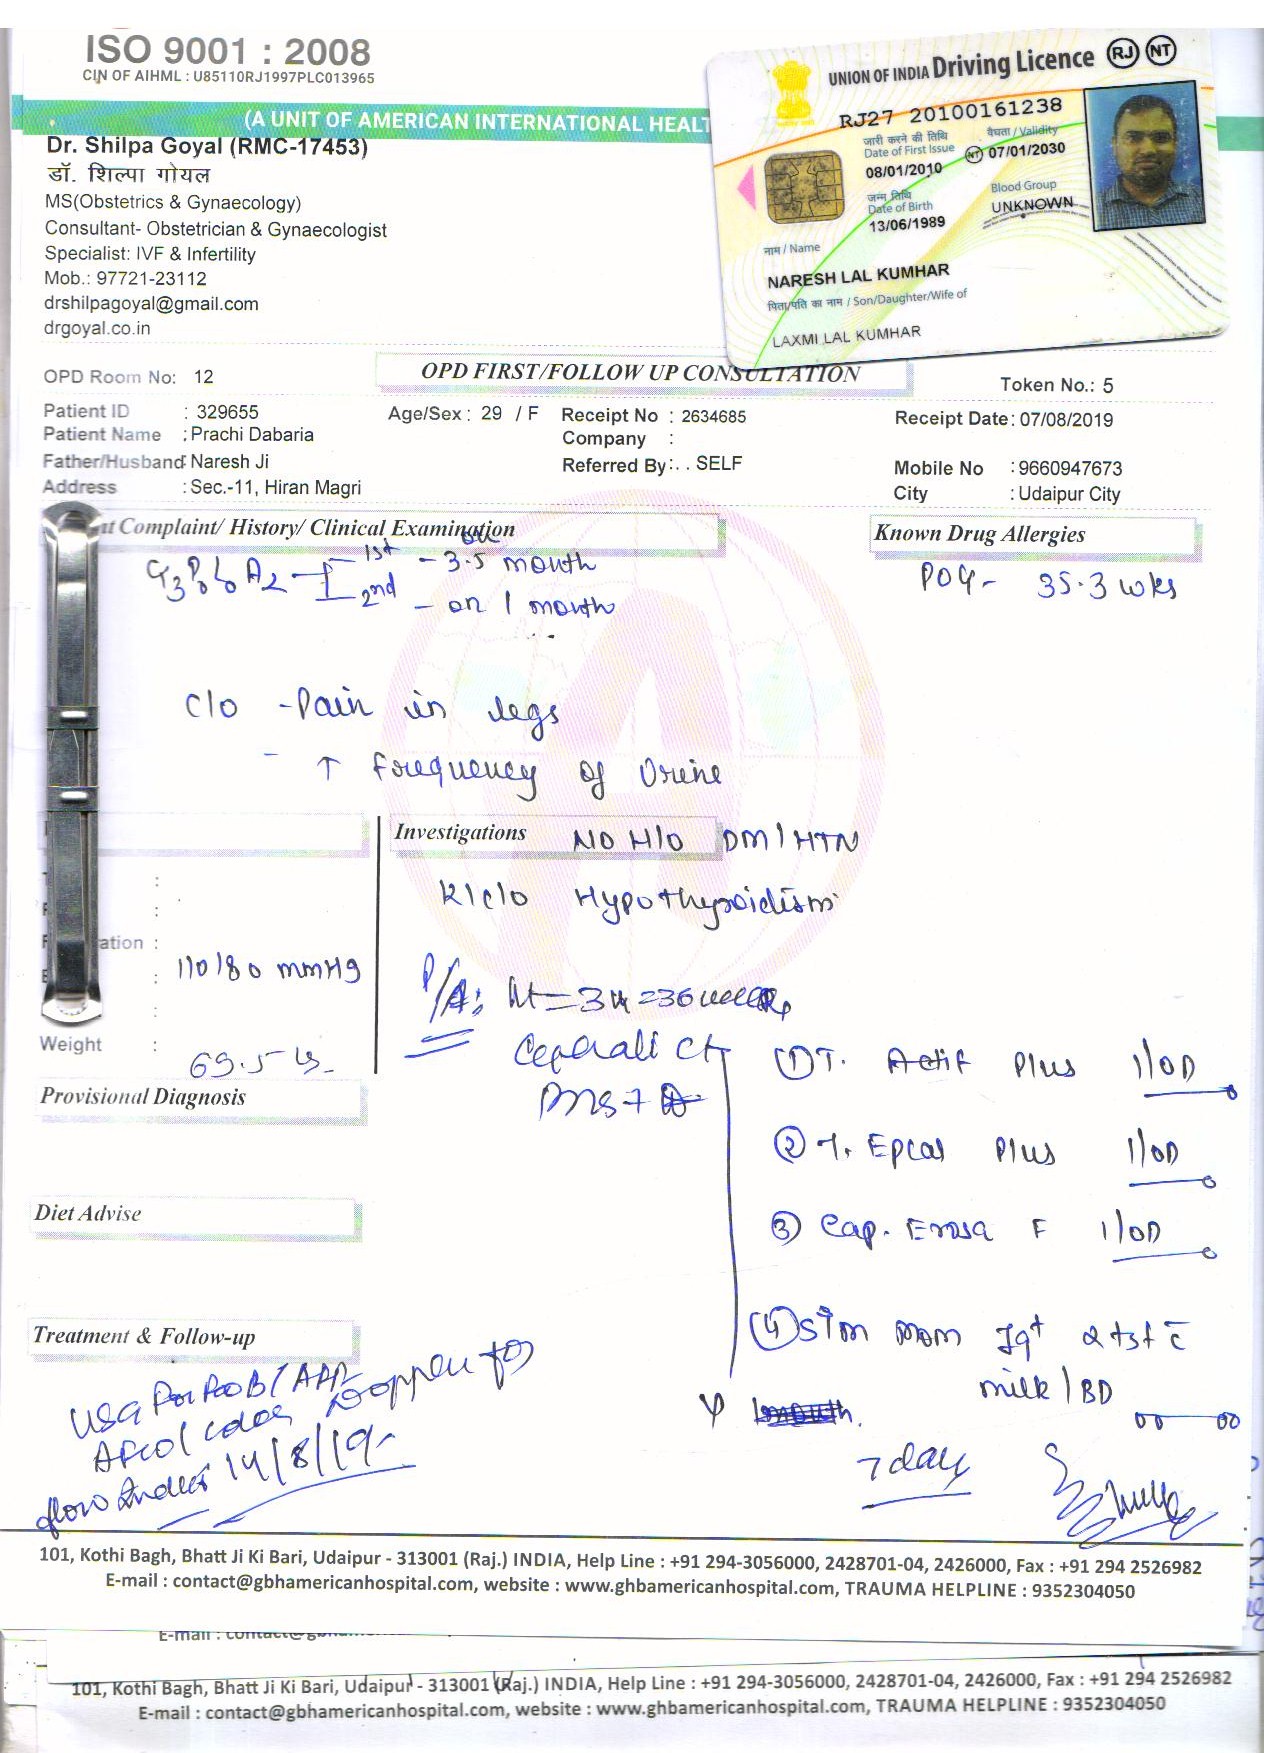 ISO 9001 : 2008
CIN OF AIHML : U85110RJ1997PLC013965
(A UNIT OF AMERICAN INTERNATIONAL HEALT
Dr. Shilpa Goyal (RMC-17453)
डॉ. शिल्पा गोयल
MS(Obstetrics & Gynaecology)
Consultant- Obstetrician & Gynaecologist
Specialist: IVF & Infertility
Mob.: 97721-23112
drshilpagoyal@gmail.com
drgoyal.co.in
UNION OF INDIA Driving Licence RJ NT
RJ27 20100161238
जारी करने की तिथि वैधता / Validity
Date of First Issue NT 07/01/2030
08/01/2010
जन्म तिथि Blood Group
Date of Birth UNKNOWN
13/06/1989
नाम / Name
NARESH LAL KUMHAR
पिता/पति का नाम / Son/Daughter/Wife of
LAXMI LAL KUMHAR
OPD Room No: 12 OPD FIRST/FOLLOW UP CONSULTATION Token No.: 5
Patient ID : 329655 Age/Sex : 29 / F Receipt No : 2634685 Receipt Date: 07/08/2019
Patient Name : Prachi Dabaria Company :
Father/Husband: Naresh Ji Referred By: . . SELF Mobile No : 9660947673
Address : Sec.-11, Hiran Magri City : Udaipur City
nt Complaint/ History/ Clinical Examination Known Drug Allergies
G3P0L0A2 - 1st - 3.5 month POG - 35.3 wks
2nd - on 1 month
C/o - Pain in legs
- ↑ Frequency of Urine
Investigations NO H/O DM / HTN
K/c/o Hypothyroidism
ation :
110/80 mmHg
P/A:
Weight : 69.5
Provisional Diagnosis
① T. Actif Plus 1/OD
② T. Epcal Plus 1/OD
Diet Advise
③ Cap. Emsa F 1/OD
Treatment & Follow-up
④ milk / BD
USG Doppler
flow 14/8/19
7 day
101, Kothi Bagh, Bhatt Ji Ki Bari, Udaipur - 313001 (Raj.) INDIA, Help Line : +91 294-3056000, 2428701-04, 2426000, Fax : +91 294 2526982
E-mail : contact@gbhamericanhospital.com, website : www.ghbamericanhospital.com, TRAUMA HELPLINE : 9352304050
101, Kothi Bagh, Bhatt Ji Ki Bari, Udaipur - 313001 (Raj.) INDIA, Help Line : +91 294-3056000, 2428701-04, 2426000, Fax : +91 294 2526982
E-mail : contact@gbhamericanhospital.com, website : www.ghbamericanhospital.com, TRAUMA HELPLINE : 9352304050